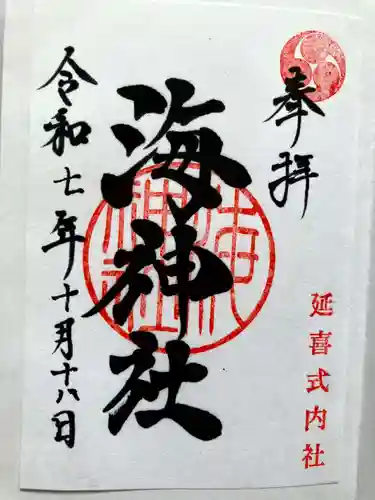 奉拝
延喜式内社
海神社
令和七年十月十八日
海神社